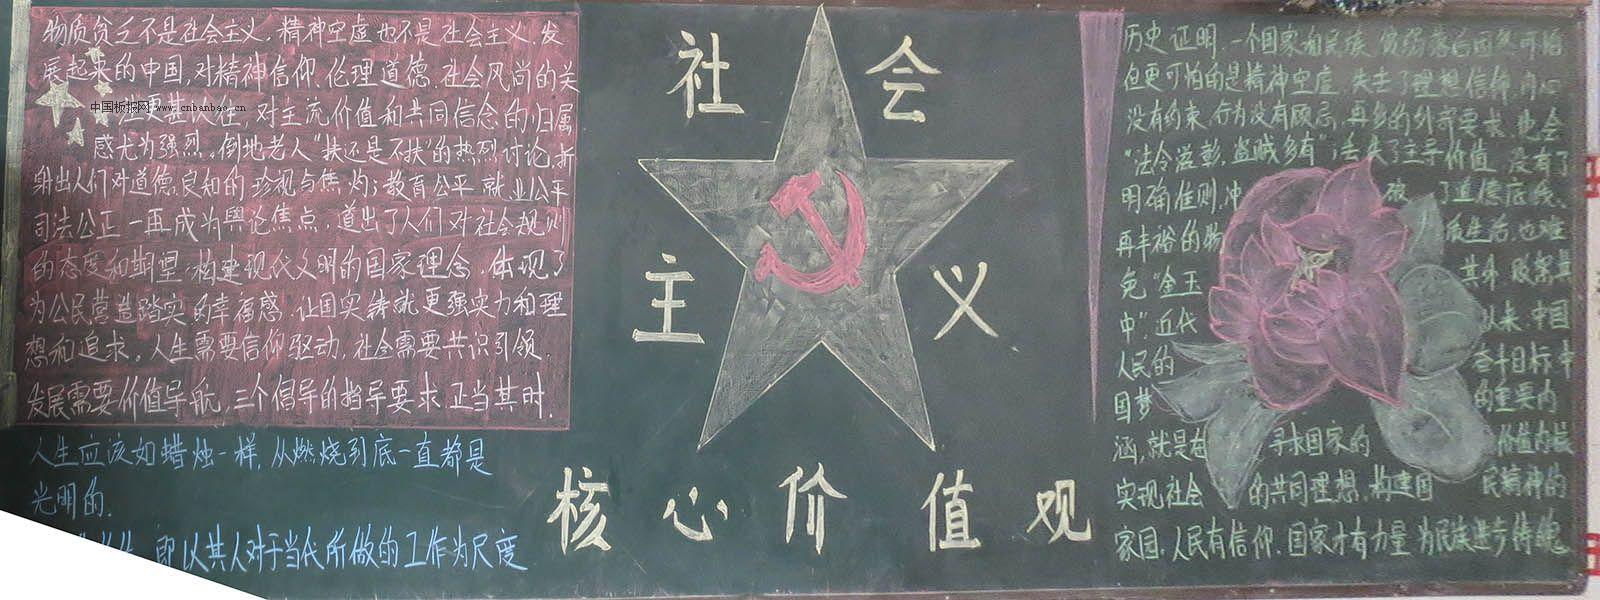 物质贫乏不是社会主义，精神空虚也不是社会主义。发
展起来的中国，对精神信仰、伦理道德、社会风尚的关
中国板报网 www.cnbanbao.cn
注更甚以往，对主流价值和共同信念的归属
感尤为强烈。倒地老人“扶还是不扶”的热烈讨论，折
射出人们对道德良知的珍视与焦灼；教育公平 就业公平
司法公正一再成为舆论焦点，道出了人们对社会规则
的态度和期望 构建现代文明的国家理念，体现了
为公民营造踏实的幸福感，让国实铸就更强实力和理
想和追求，人生需要信仰驱动，社会需要共识引领，
发展需要价值导航，三个倡导的指导要求正当其时。
人生应该如蜡烛一样，从燃烧到底一直都是
光明的。
即以其人对于当代所做的工作为尺度
社 会
主 义
核 心 价 值 观
历史证明，一个国家和民族，贫弱落后固然可怕
但更可怕的是精神空虚。失去了理想信仰，内心
没有约束，行为没有顾忌，再多的外部要求，也会
“法令滋彰，盗贼多有”；丢失了主导价值，没有了
明确准则，冲破了道德底线，
再丰裕的物质生活，也难
免“金玉其外，败絮其
中”。近代以来，中国
人民的奋斗目标 中
国梦的重要内
涵，就是在寻求国家的价值内核
实现社会的共同理想，构建国民精神的
家园。人民有信仰，国家才有力量 为民族进步铸魂